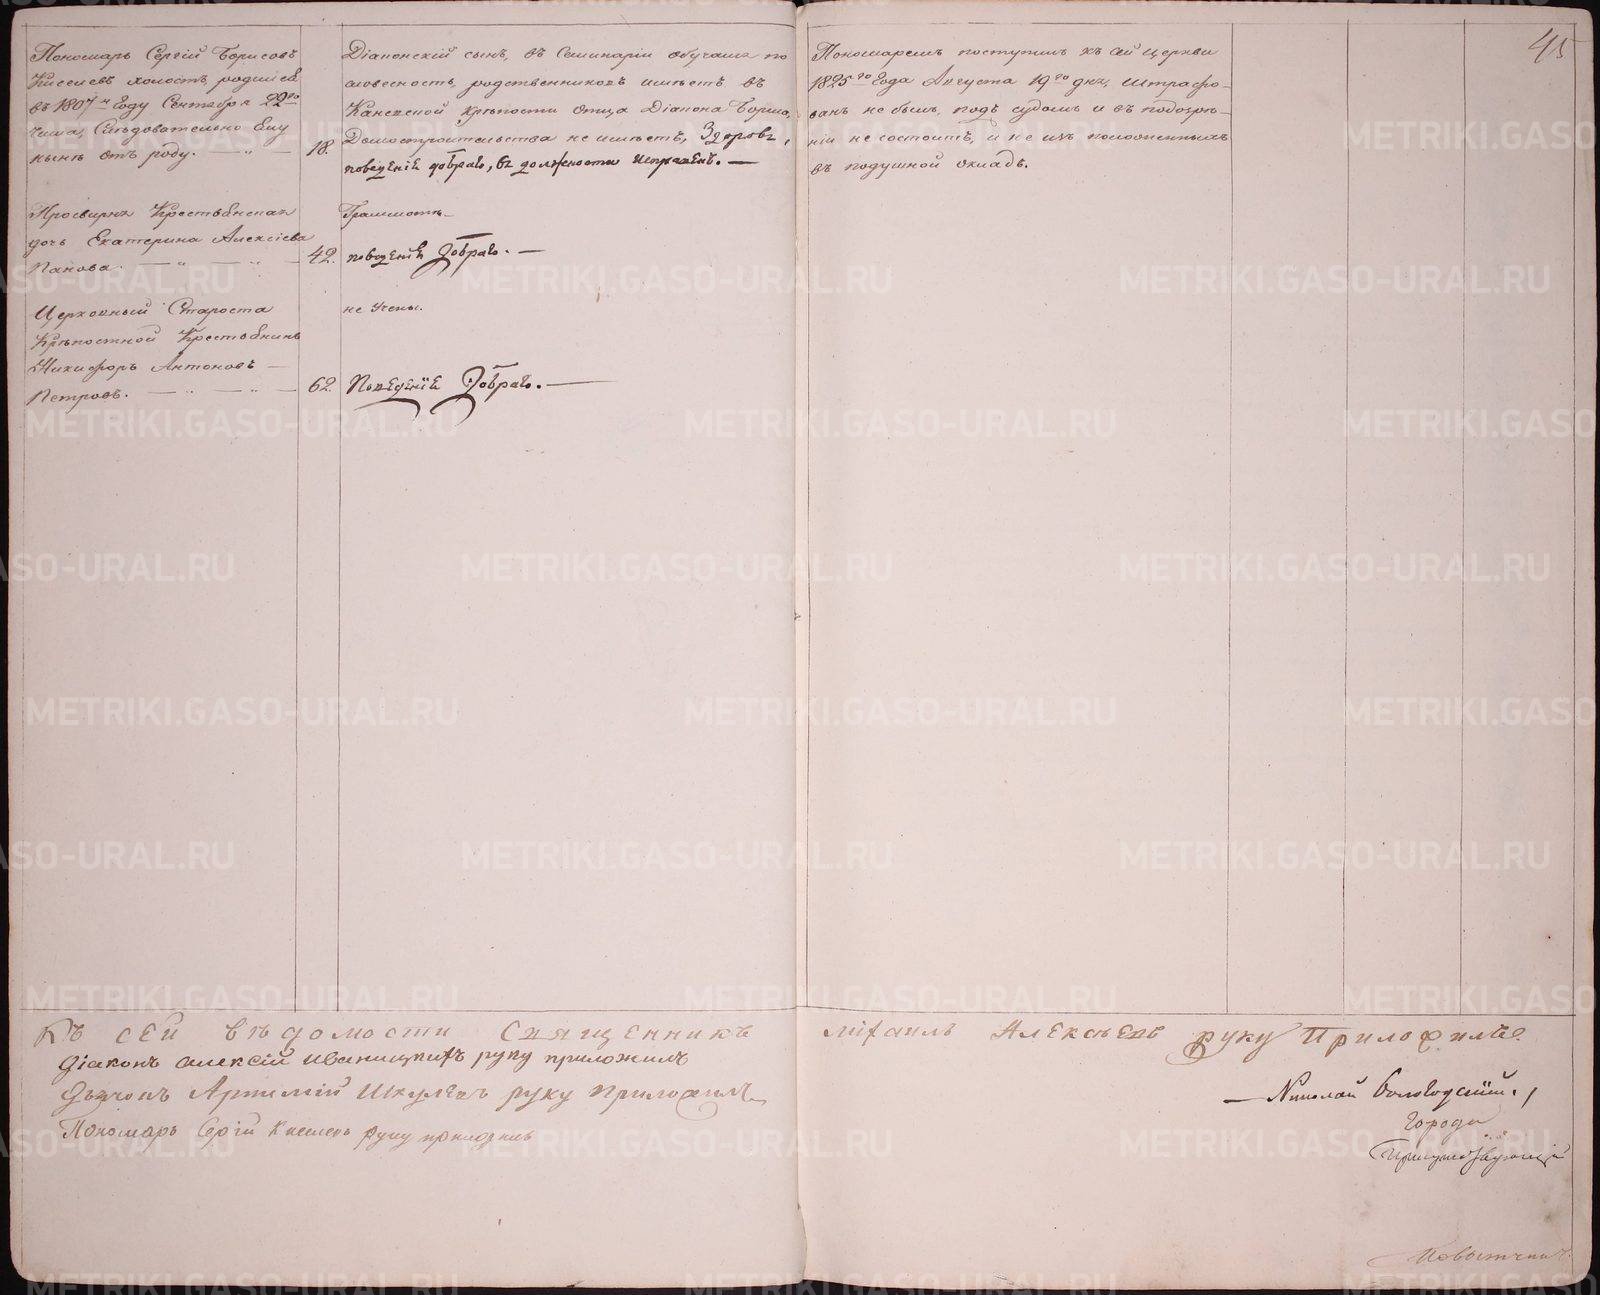 45
Пономарь Сергій Борисовъ
Киселевъ холостъ, родился
въ 1807 м Году Сентября 22го
числа, Слѣдовательно Ему
нынѣ отъ роду. — „ — 18.
Діаконскій сынъ, въ Семинаріи обучался по
словесность, родственниковъ имѣетъ въ
крѣпости Отца Діакона Бориса,
Домостроительства не имѣетъ, Здоровъ,
поведенія добраго, въ должности исправенъ. —
Пономаремъ поступилъ къ сей церкви
1825 го Года Августа 19 го дня, Штрафо-
ванъ не былъ, подъ судомъ и въ подозрѣ-
ніи не состоитъ, и не изъ положенныхъ
въ подушной окладъ.
Просвирня Крестьянская
дочь Екатерина Алексіева
Панова. — „ — „ — 42.
Грамотѣ
поведенія Добраго. —
Церковный Староста
Крѣпостной Крестьянинъ
Никифоръ Антоновъ —
Петровъ. — „ — „ — 62.
не Ученъ.
Поведенія Добраго. —
Къ сей вѣдомости Священникъ Михаилъ Алексѣевъ руку Приложилъ.
Діаконъ Алексій Иваницкихъ руку приложилъ
Дьячокъ Артемій Шкулевъ руку приложилъ
Пономарь Сергій Киселевъ руку приложилъ
— Николай Вологодскій.,
METRIKI.GASO-URAL.RU